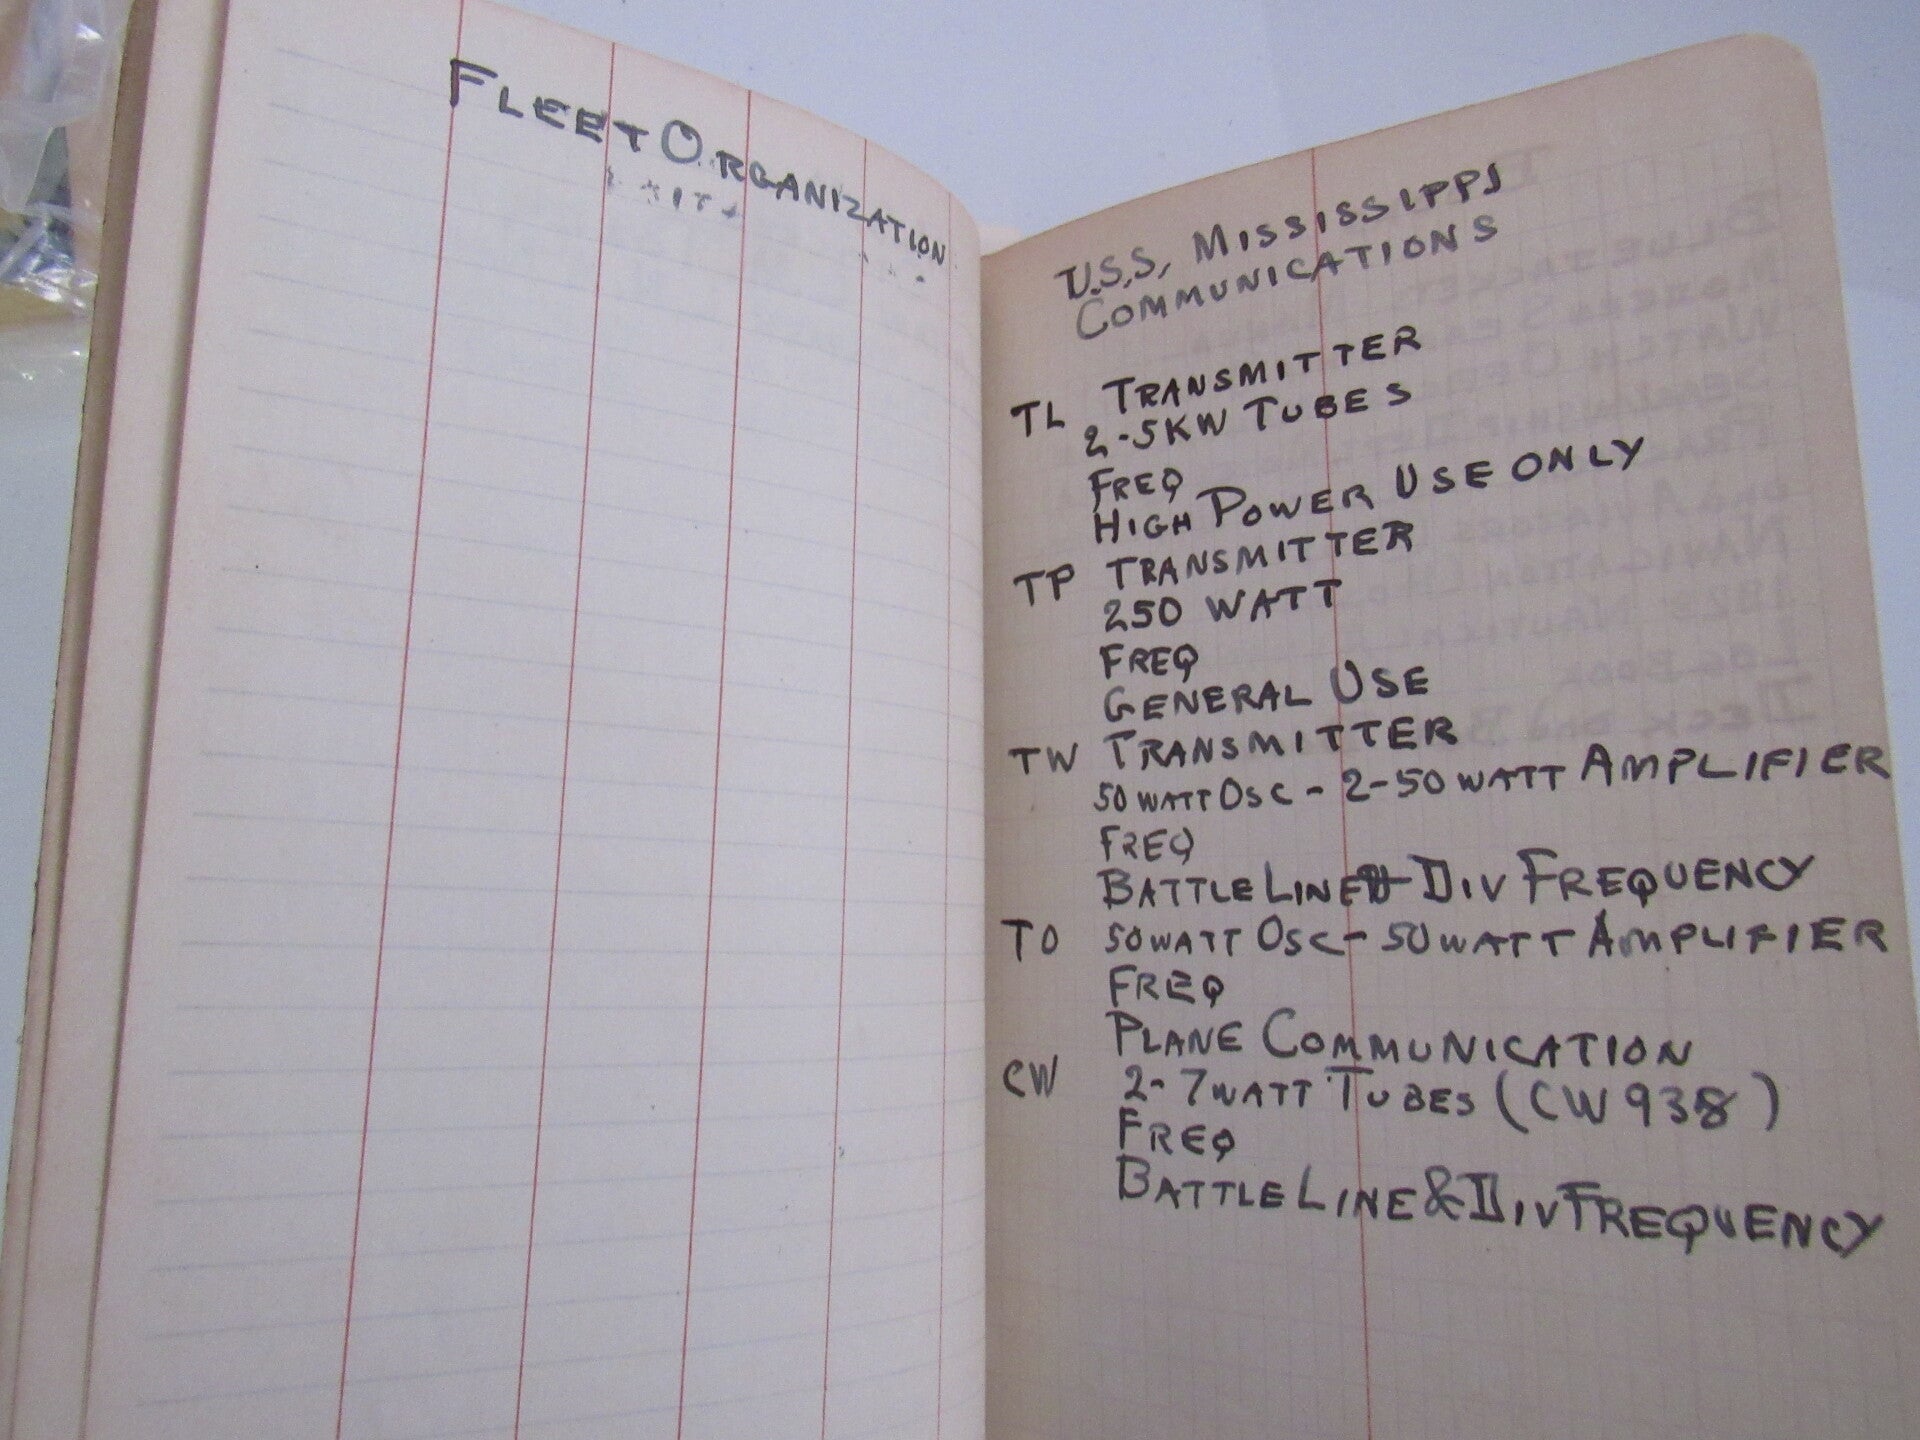 FLEET ORGANIZATION
U.S.S. MISSISSIPPI
COMMUNICATIONS
TL TRANSMITTER
2-5KW TUBES
FREQ
HIGH POWER USE ONLY
TP TRANSMITTER
250 WATT
FREQ
GENERAL USE
TW TRANSMITTER
50 WATT OSC - 2-50 WATT AMPLIFIER
FREQ
BATTLE LINE & DIV FREQUENCY
TO 50 WATT OSC - 50 WATT AMPLIFIER
FREQ
PLANE COMMUNICATION
CW 2-7 WATT TUBES (CW 938)
FREQ
BATTLE LINE & DIV FREQUENCY